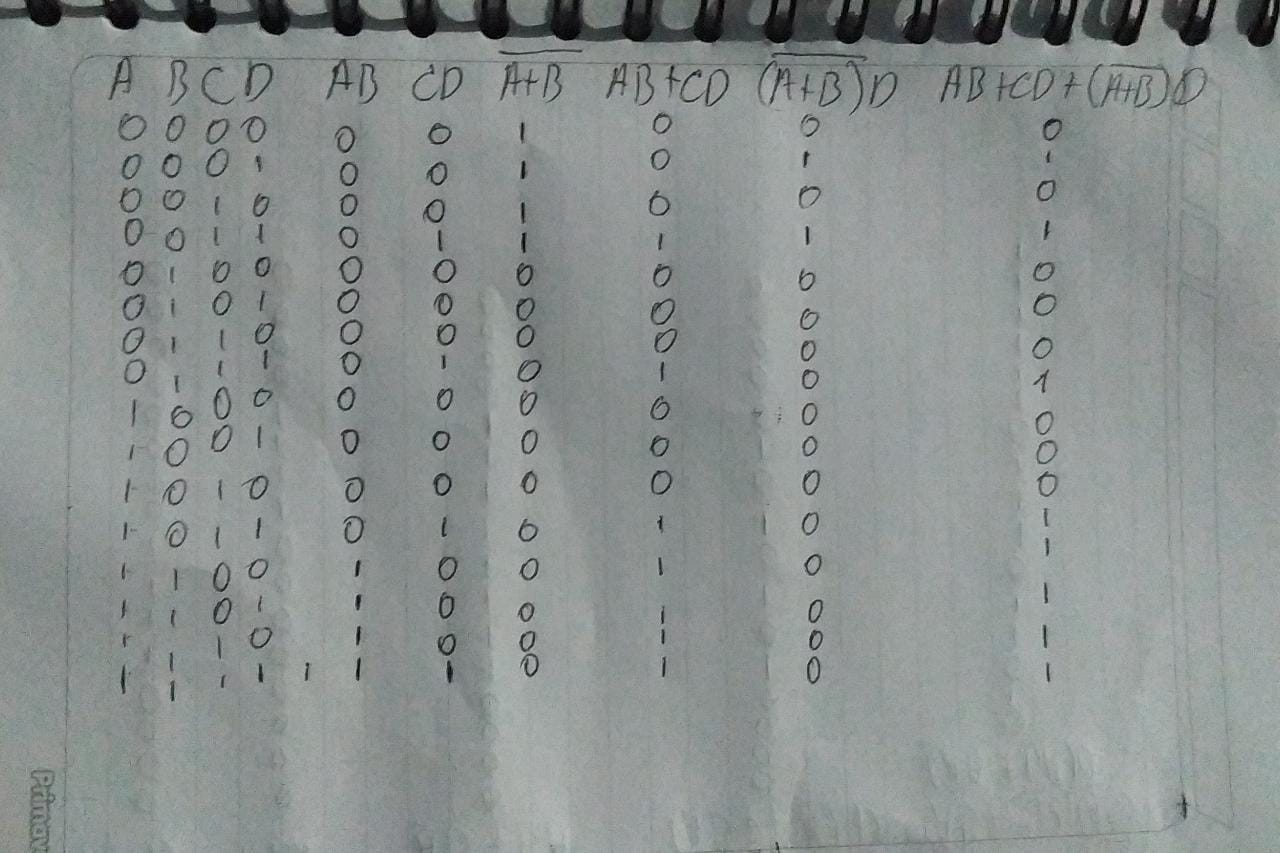 A B C D AB CD A̅+̅B̅ AB+CD (A̅+̅B̅)D AB+CD+(A̅+̅B̅)D
0 0 0 0 0 0 1 0 0 0
0 0 0 1 0 0 1 0 1 1
0 0 1 0 0 0 1 0 0 0
0 0 1 1 0 1 1 1 1 1
0 1 0 0 0 0 0 0 0 0
0 1 0 1 0 0 0 0 0 0
0 1 1 0 0 0 0 0 0 0
0 1 1 1 0 1 0 1 0 1
1 0 0 0 0 0 0 0 0 0
1 0 0 1 0 0 0 0 0 0
1 0 1 0 0 0 0 0 0 0
1 0 1 1 0 1 0 1 0 1
1 1 0 0 1 0 0 1 0 1
1 1 0 1 1 0 0 1 0 1
1 1 1 0 1 0 0 1 0 1
1 1 1 1 1 1 0 1 0 1